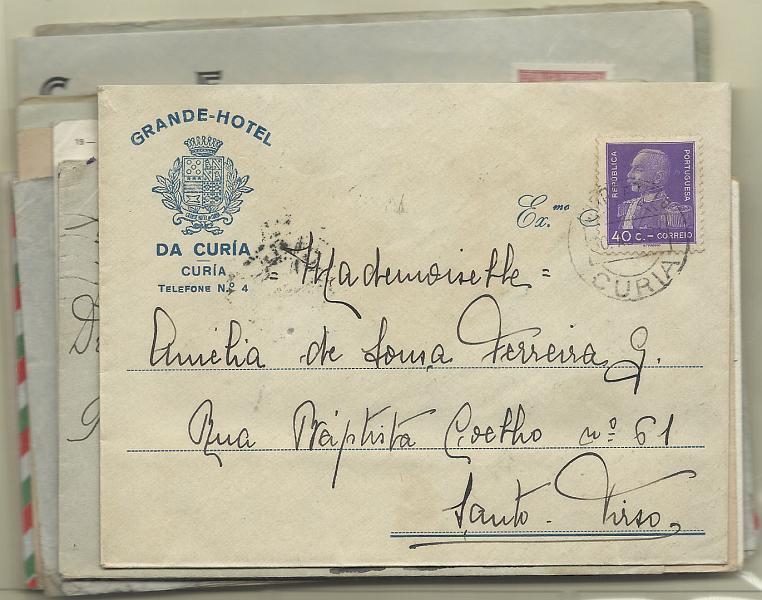 GRANDE-HOTEL
DA CURÍA
CURÍA
TELEFONE N.º 4
Ex.mo
REPUBLICA PORTUGUESA
40 C. - CORREIO
CURIA
Mademoiselle =
Amélia de Sousa Ferreira G.
Rua Baptista Coelho nº 61
Santo Tirso,